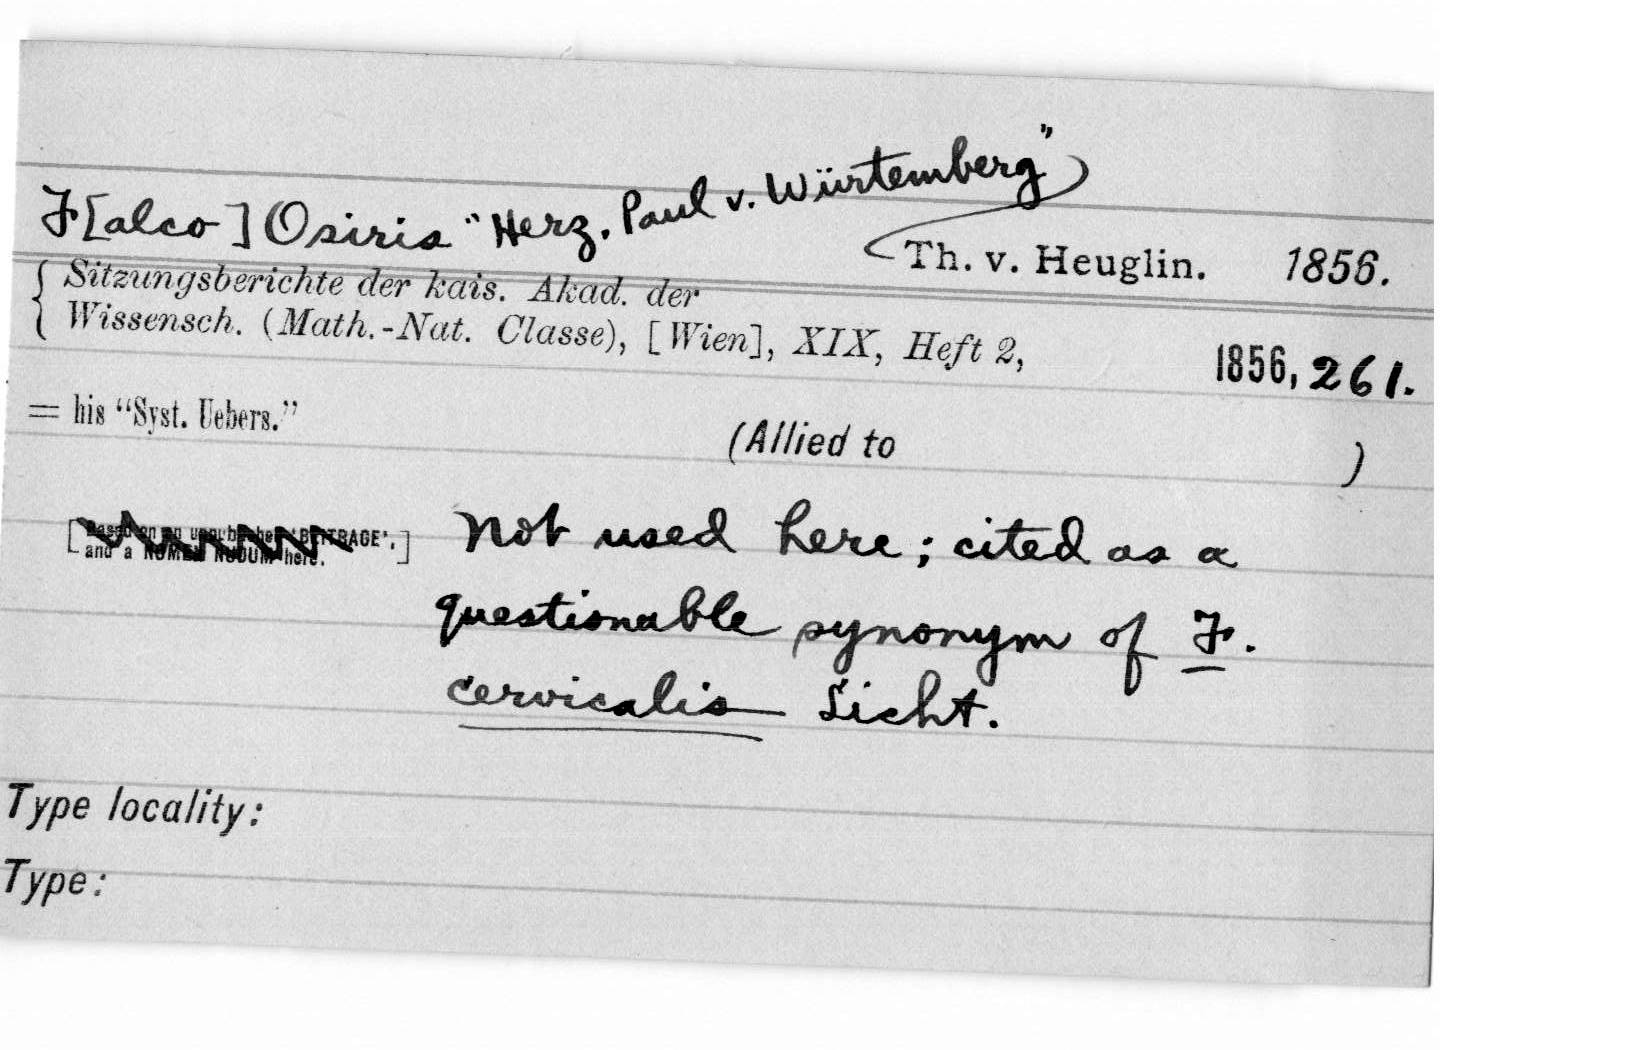 F[alco] Osiris "Herz. Paul v. Würtemberg"
Th. v. Heuglin. 1856.
Sitzungsberichte der kais. Akad. der
Wissensch. (Math.-Nat. Classe), [Wien], XIX, Heft 2,
1856, 261.
= his "Syst. Uebers."
(Allied to )
[Based on an unpublished 'BEITRAGE',
and a NOMEN NUDUM here.]
Not used here; cited as a
questionable synonym of F.
cervicalis Licht.
Type locality:
Type: